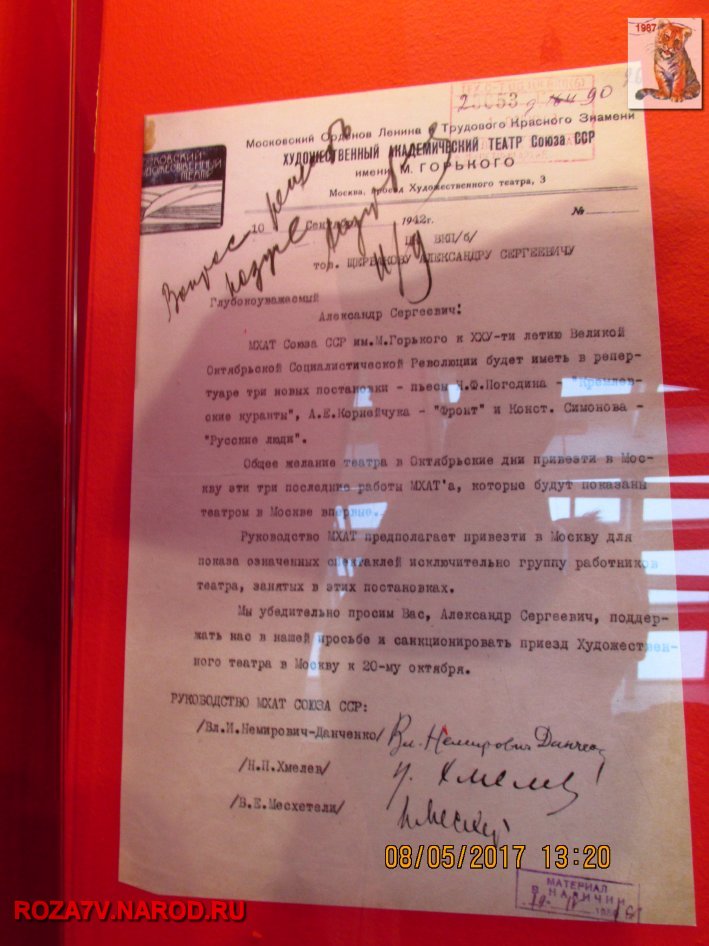 1987
20053
90
Московский Орденов Ленина и Трудового Красного Знамени
ХУДОЖЕСТВЕННЫЙ АКАДЕМИЧЕСКИЙ ТЕАТР Союза ССР
имени М. ГОРЬКОГО
Москва, проезд Художественного театра, 3
МОСКОВСКИЙ
ХУДОЖЕСТВЕННЫЙ
ТЕАТР
10 Сентября 1942г. №
ЦК ВКП/б/
тов. ЩЕРБАКОВУ АЛЕКСАНДРУ СЕРГЕЕВИЧУ
Вопрос решить
позже
Глубокоуважаемый
Александр Сергеевич!
МХАТ Союза ССР им.М.Горького к ХХУ-ти летию Великой
Октябрьской Социалистической Революции будет иметь в репер-
туаре три новых постановки - пьесы Н.Ф.Погодина - "Кремлев-
ские куранты", А.Е.Корнейчука - "Фронт" и Конст. Симонова -
"Русские люди".
Общее желание театра в Октябрьские дни привезти в Мос-
кву эти три последние работы МХАТ'а, которые будут показаны
театром в Москве впервые.
Руководство МХАТ предполагает привезти в Москву для
показа означенных спектаклей исключительно группу работников
театра, занятых в этих постановках.
Мы убедительно просим Вас, Александр Сергеевич, поддер-
жать нас в нашей просьбе и санкционировать приезд Художествен-
ного театра в Москву к 20-му октября.
РУКОВОДСТВО МХАТ СОЮЗА ССР:
/Вл.И.Немирович-Данченко/ Вл. Немирович Данченко
/Н.П.Хмелев/ Н. Хмелев
/В.Е.Месхетели/
08/05/2017 13:20
МАТЕРИАЛ
В НАЛИЧИИ
ROZA7V.NAROD.RU